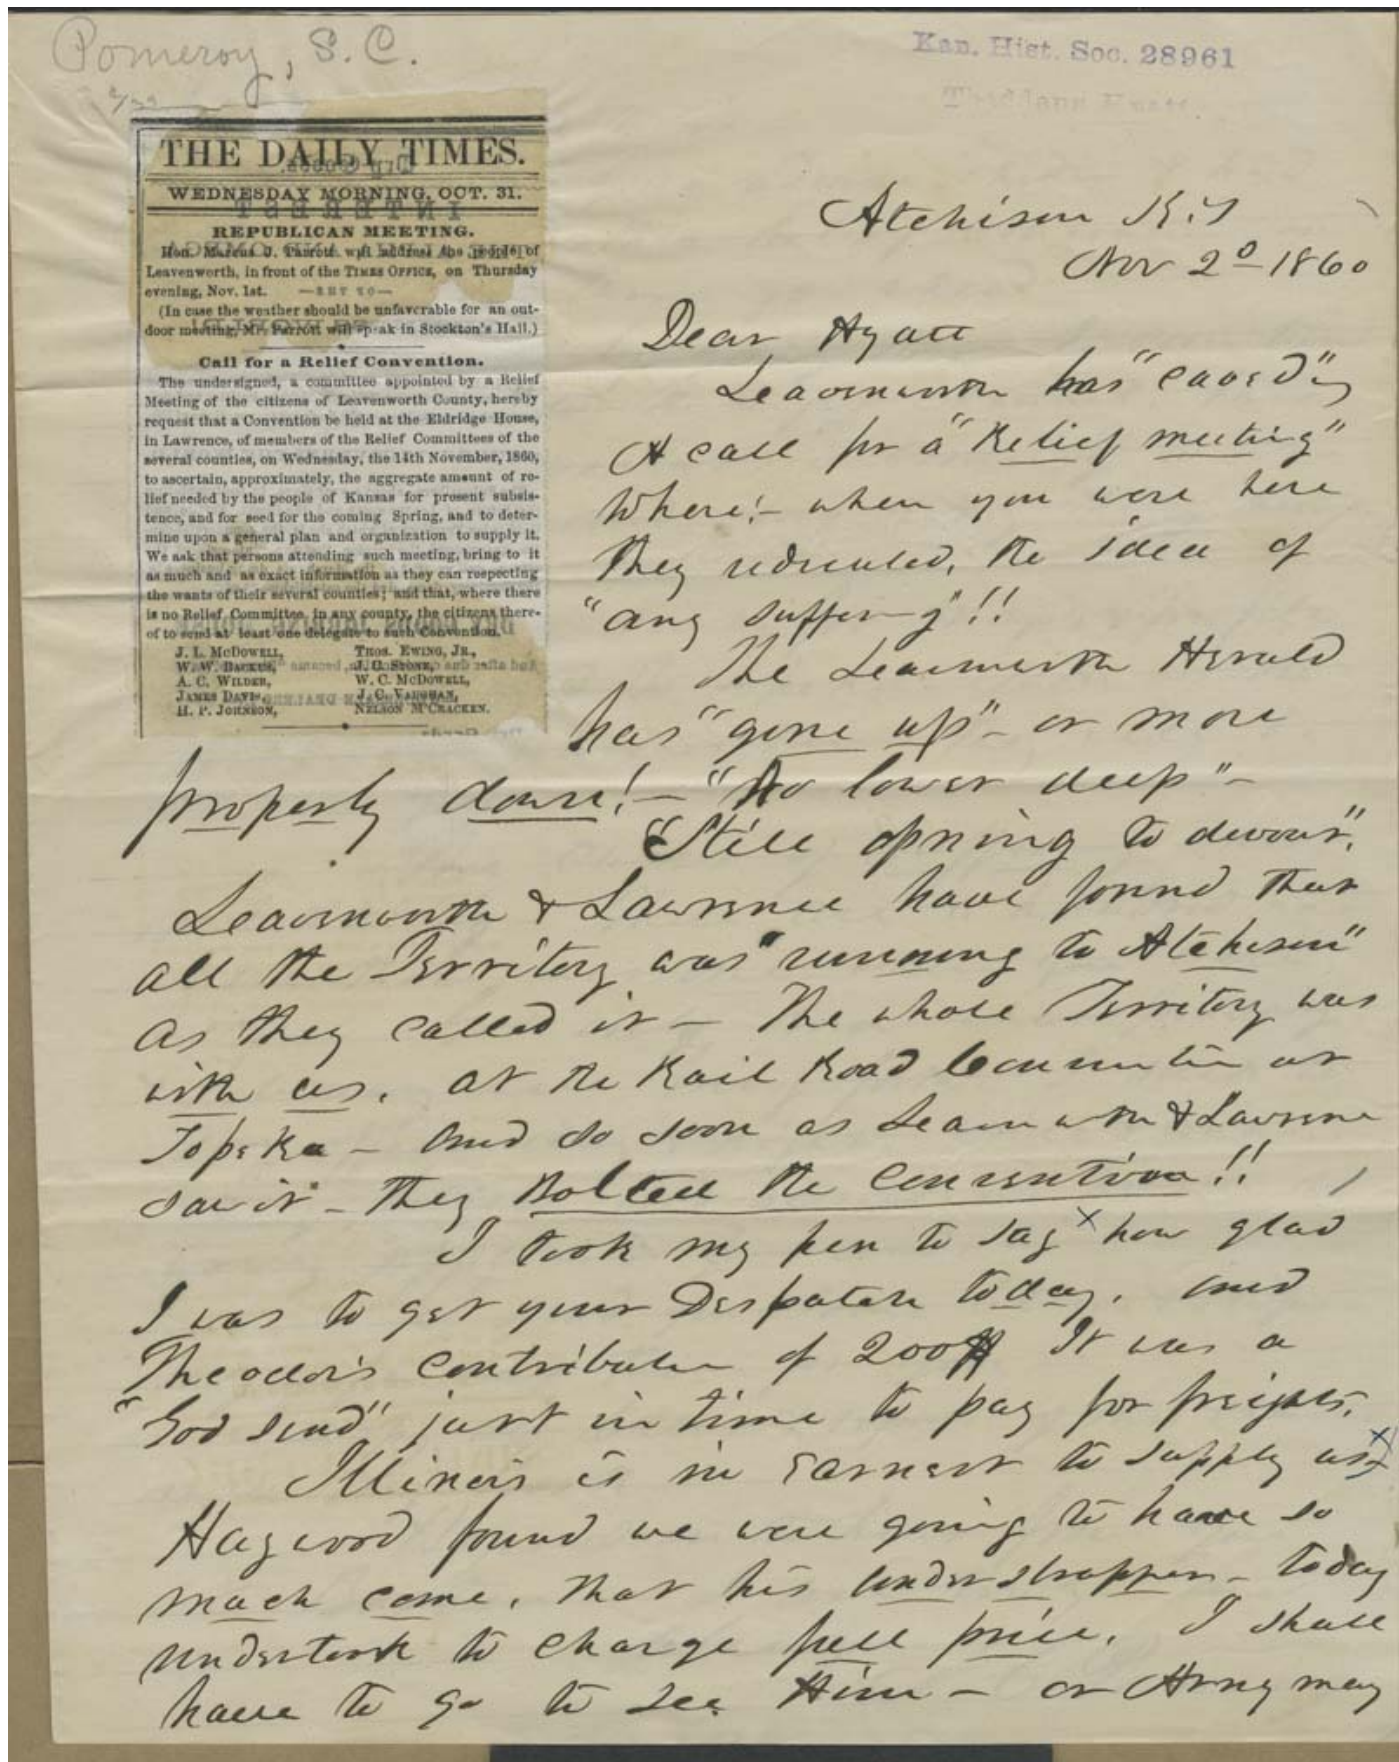 Pomeroy, S. C.
Kan. Hist. Soc. 28961
Thaddeus Hyatt
THE DAILY TIMES.
WEDNESDAY MORNING, OCT. 31.
REPUBLICAN MEETING.
Hon. Marcus J. Parrott will address the people of
Leavenworth, in front of the TIMES OFFICE, on Thursday
evening, Nov. 1st.
(In case the weather should be unfavorable for an out-
door meeting, Mr. Parrott will speak in Stockton's Hall.)
Call for a Relief Convention.
The undersigned, a committee appointed by a Relief
Meeting of the citizens of Leavenworth County, hereby
request that a Convention be held at the Eldridge House,
in Lawrence, of members of the Relief Committees of the
several counties, on Wednesday, the 14th November, 1860,
to ascertain, approximately, the aggregate amount of re-
lief needed by the people of Kansas for present subsis-
tence, and for seed for the coming Spring, and to deter-
mine upon a general plan and organization to supply it.
We ask that persons attending such meeting, bring to it
as much and as exact information as they can respecting
the wants of their several counties; and that, where there
is no Relief Committee in any county, the citizens there-
of to send at least one delegate to such Convention.
J. L. McDOWELL, THOS. EWING, JR.,
W. W. BACKUS, J. C. STONE,
A. C. WILDER, W. C. McDOWELL,
JAMES DAVIS, J. C. VAUGHAN,
H. P. JOHNSON, NELSON McCRACKEN.
Atchison K.T
Nov 2d 1860
Dear Hyatt
Leavenworth has "caved" in
A call for a "Relief meeting"
Where! - when you were here
they ridiculed, the idea of
"any suffering"!!
The Leavenworth Herald
has "gone up" - or more
properly down! - "No lower deep" -
"Still opning to devour".
Leavenworth & Lawrence have found that
all the Territory was "running to Atchison"
as they called it - The whole Territory was
with us. at the Rail Road Convention at
Topeka - and so soon as Leavenworth & Lawrence
saw it - They bolted the Convention!!
I took my pen to say how glad
I was to get your Despatch today. and
Theodor's contribution of 200$ It was a
"God send" just in time to pay for freights.
Illinois is in earnest to supply us
Haywood found we were going to have so
much come, that his understrapper - today
undertook to charge full price. I shall
have to go to see Him - or Arny may